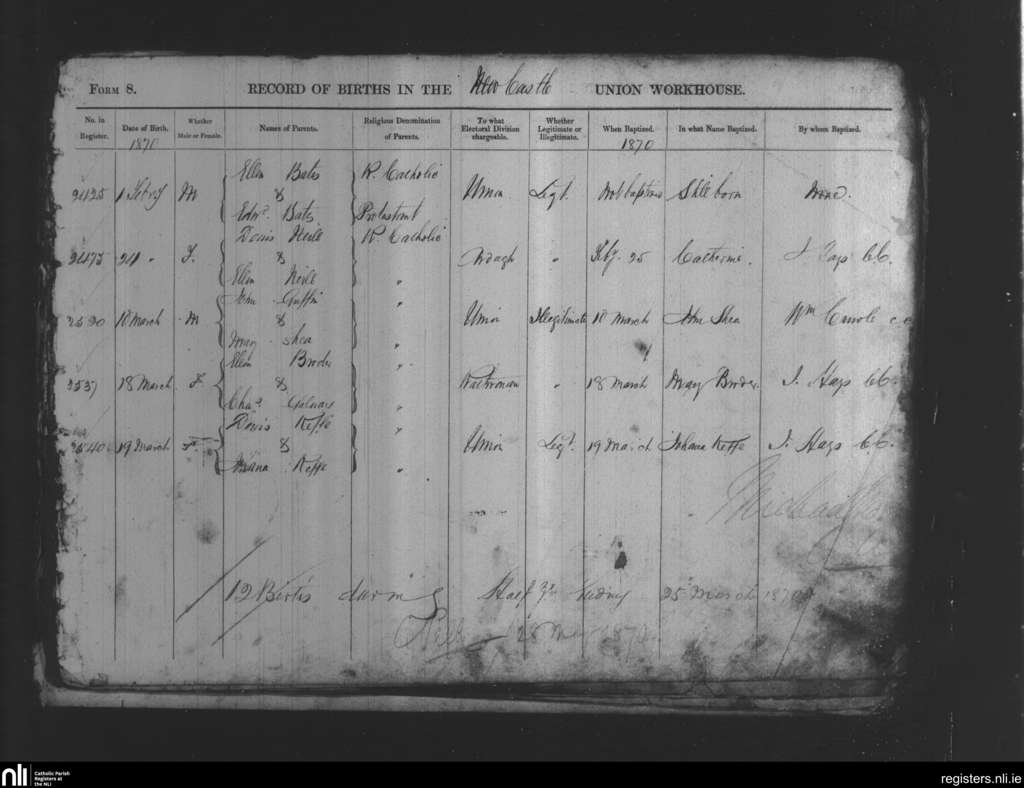 FORM 8. RECORD OF BIRTHS IN THE New Castle UNION WORKHOUSE.
No. in Register. Date of Birth. Whether Male or Female. Names of Parents. Religious Denomination of Parents. To what Electoral Division chargeable. Whether Legitimate or Illegitimate. When Baptized. In what Name Baptized. By whom Baptized.
1870 1870
Ellen Bates R. Catholic
1 Feby M & Union Legt. Not baptised Still born None.
Edwd. Bates Protestant
Denis Neill R. Catholic
24 " F. & " Feby. 25 Catherine. J Hays CC.
Ellen Neill "
Griffin "
2520 10 March M & Union Illegitimate 10 March John Shea Wm Carroll CC
Mary Shea "
Ellen Broder "
2537 18 March F & " 18 March Mary Broder. J. Hays CC
Chas. "
Denis Keffe "
2540 19 March F. & Union Legt. 19 March Johana Keffe J. Hays CC.
Johana Keffe "
Michael
12 Births during Half Yr Ending 25 March 1870
28 May 1870
nli Catholic Parish Registers at the NLI
registers.nli.ie